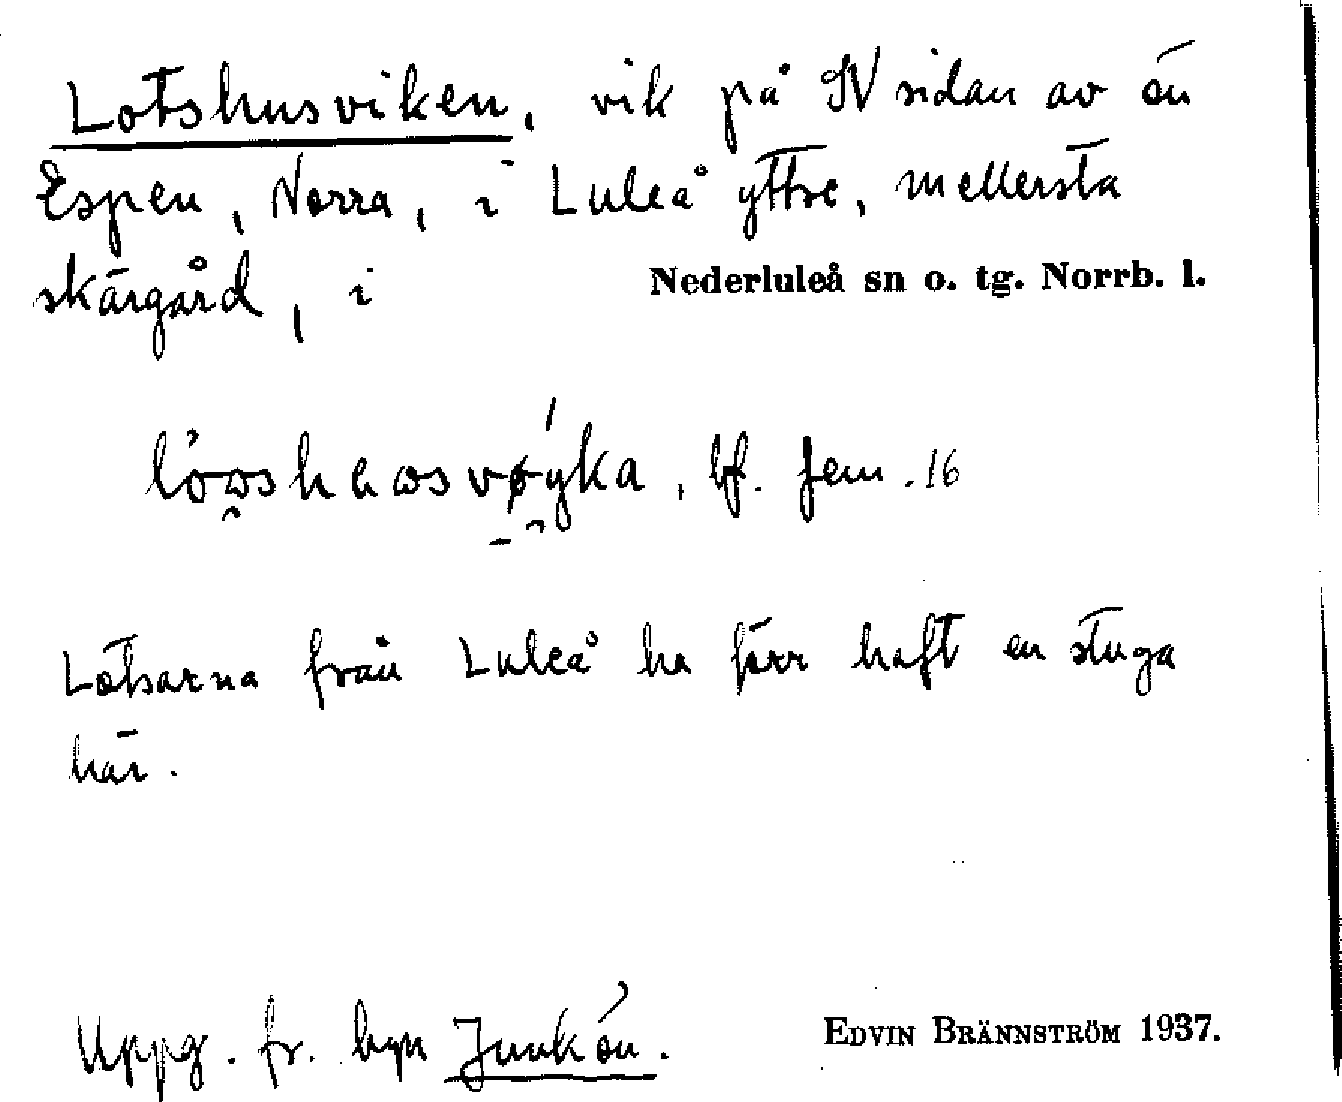 Lotshusviken, vik på SV sidan av ön
Espen, Norra, i Luleå yttre, mellersta
skärgård, i Nederluleå sn o. tg. Norrb. l.
bf. fem. 16
Lotsarna från Luleå ha förr haft en stuga
här.
Uppg. fr. byn Junkön. EDVIN BRÄNNSTRÖM 1937.